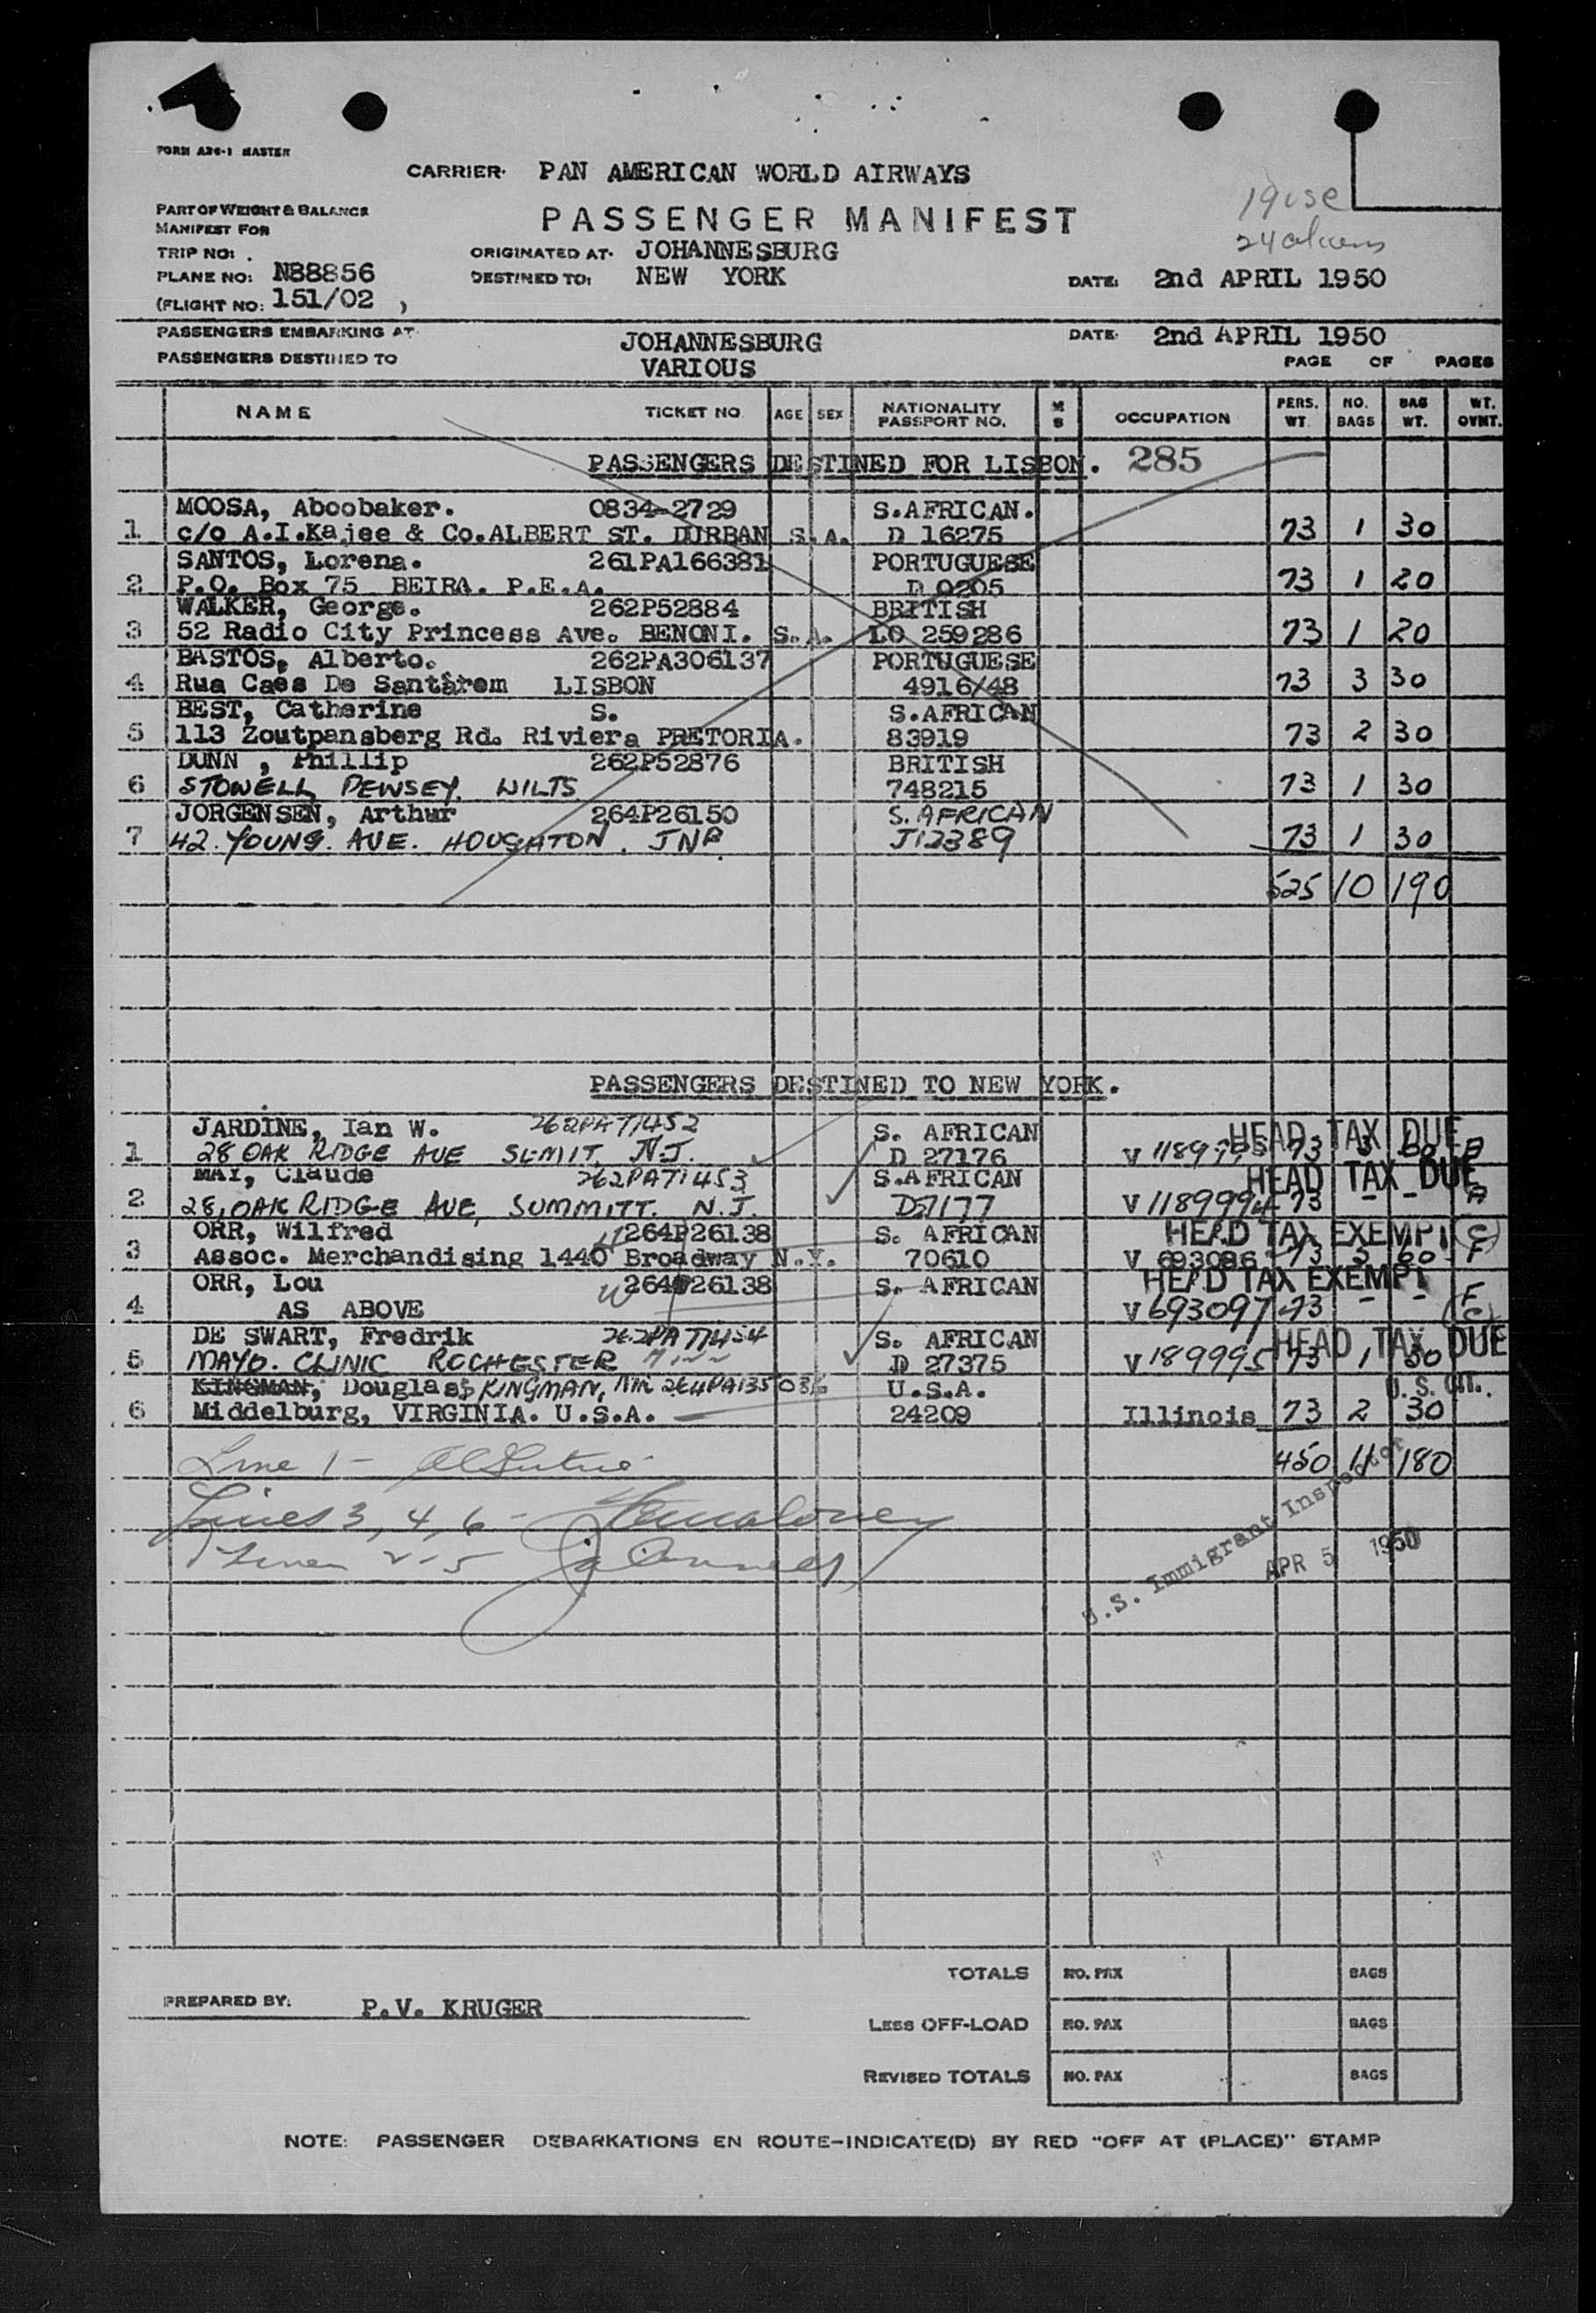 FORM A26-1 MASTER
CARRIER. PAN AMERICAN WORLD AIRWAYS
PART OF WEIGHT & BALANCE
MANIFEST FOR
PASSENGER MANIFEST
19 USC
24 aliens
TRIP NO: .
ORIGINATED AT. JOHANNESBURG
PLANE NO: N88856
DESTINED TO: NEW YORK
DATE: 2nd APRIL 1950
(FLIGHT NO: 151/02 )
PASSENGERS EMBARKING AT. JOHANNESBURG
DATE. 2nd APRIL 1950
PASSENGERS DESTINED TO VARIOUS
PAGE OF PAGES
NAME TICKET NO. AGE SEX NATIONALITY PASSPORT NO. M S OCCUPATION PERS. WT. NO. BAGS BAG WT. WT. OVNT.
PASSENGERS DESTINED FOR LISBON. 285
MOOSA, Aboobaker. 0834-2729 S.AFRICAN.
1 c/o A.I.Kajee & Co.ALBERT ST. DURBAN S.A. D 16275 73 1 30
SANTOS, Lorena. 261PA166381 PORTUGUESE
2 P.O. Box 75 BEIRA. P.E.A. D 0205 73 1 20
WALKER, George. 262P52884 BRITISH
3 52 Radio City Princess Ave. BENONI. S.A. LO 259286 73 1 20
BASTOS, Alberto. 262PA306137 PORTUGUESE
4 Rua Caes De Santarem LISBON 4916/48 73 3 30
BEST, Catherine S. S.AFRICAN
5 113 Zoutpansberg Rd. Riviera PRETORIA. 83919 73 2 30
DUNN , Phillip 262P52876 BRITISH
6 STOWELL, PEWSEY, WILTS 748215 73 1 30
JORGENSEN, Arthur 264P26150 S. AFRICAN
7 42. YOUNG. AVE. HOUGHTON. JNB J12389 73 1 30
525 10 190
PASSENGERS DESTINED TO NEW YORK.
JARDINE, Ian W. 262PA71452 S. AFRICAN HEAD TAX DUE
1 28 OAK RIDGE AVE SUMIT, N.J. D 27176 V 73 3 60
MAI, Claude 262PA71453 S.AFRICAN HEAD TAX DUE
2 28, OAK RIDGE AVE, SUMMITT. N.J. D27177 V 1189994 73 - - A
ORR, Wilfred 264P26138 S. AFRICAN HEAD TAX EXEMPT (C)
3 Assoc. Merchandising 1440 Broadway N.Y. 70610 V 693096 73 3 60 F
ORR, Lou W 264P26138 S. AFRICAN HEAD TAX EXEMPT F
4 AS ABOVE V 693097 73 - - (C)
DE SWART, Fredrik 262PA71454 S. AFRICAN HEAD TAX DUE
5 MAYO. CLINIC ROCHESTER D 27375 V 189995 73 1 30
KINGMAN, Douglas KINGMAN, MR U.S.A. U.S. CIT.
6 Middelburg, VIRGINIA. U.S.A. 24209 Illinois 73 2 30
Line 1 -
450 11 180
Lines 3, 4, 6 -
Lines 2 - 5
U.S. Immigrant Inspector
APR 5 1950
TOTALS NO. PAX BAGS
PREPARED BY: P.V. KRUGER
LESS OFF-LOAD NO. PAX BAGS
REVISED TOTALS NO. PAX BAGS
NOTE: PASSENGER DEBARKATIONS EN ROUTE-INDICATE(D) BY RED "OFF AT (PLACE)" STAMP